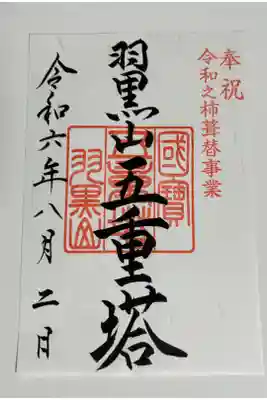 奉祝
令和之杮葺替事業
羽黒山五重塔
國寳
五重塔
羽黒山
令和六年八月二日